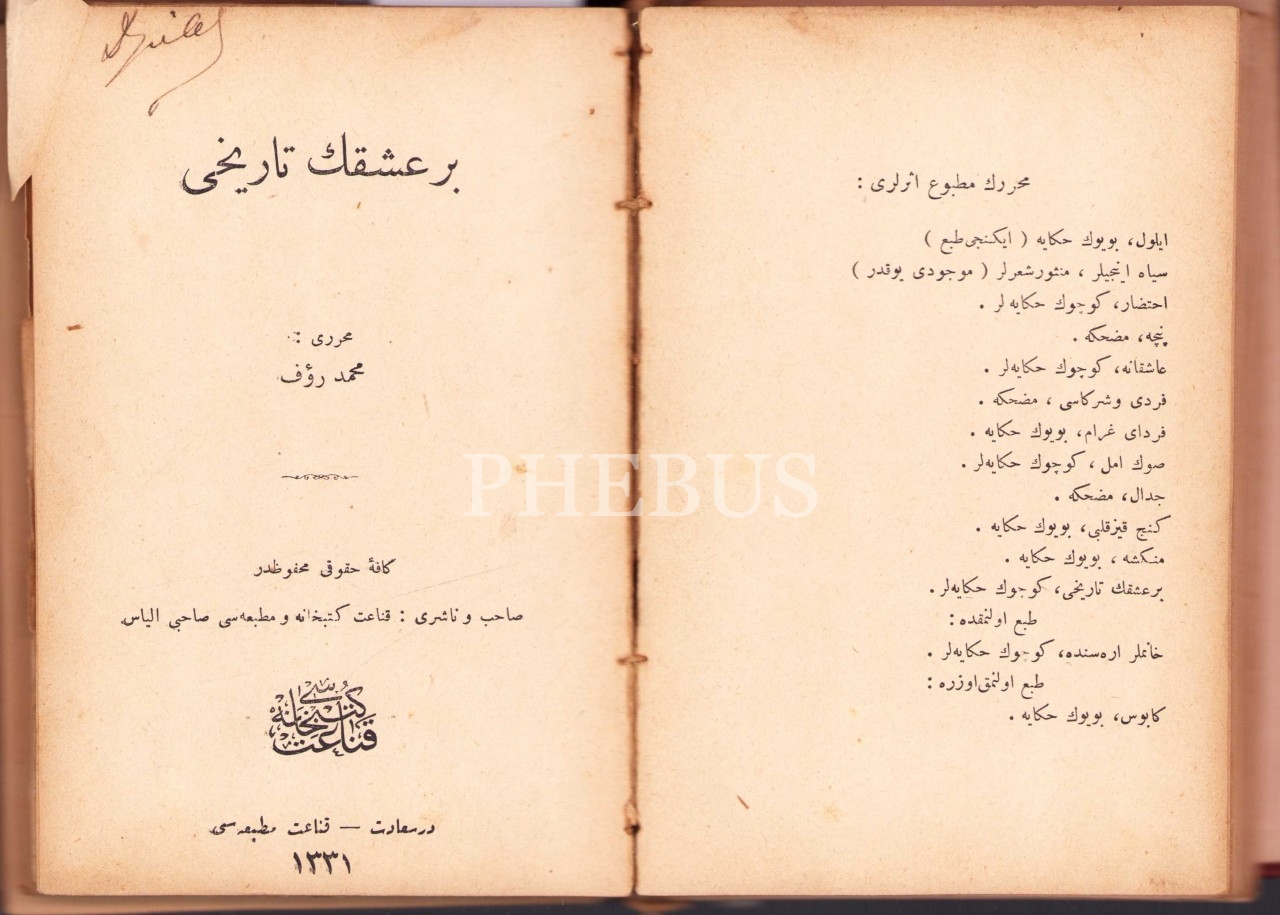 محررك مطبوع اثرلری :
ايلول، بويوك حكايه ( ايكنجی طبع )
سياه اينجيلر ، منثور شعرلر ( موجودی يوقدر )
احتضار، كوچوك حكايه‌لر .
پنچه، مضحكه .
عاشقانه، كوچوك حكايه‌لر .
فردی وشركاسی ، مضحكه .
فردای غرام، بويوك حكايه .
صوك امل ، كوچوك حكايه‌لر .
جدال، مضحكه .
كنج قيز قلبی، بويوك حكايه .
منكشه ، بويوك حكايه .
بر عشقك تاريخی، كوچوك حكايه‌لر .
طبع اولنمقده :
خانملر اره‌سنده، كوچوك حكايه‌لر .
طبع اولنمق اوزره :
كابوس، بويوك حكايه .
بر عشقك تاريخی
محرری :
محمد رؤف
كافهٔ حقوقی محفوظدر
صاحب و ناشری : قناعت كتبخانه و مطبعه‌سی صاحبی الياس
قناعت كتبخانه‌سی
درسعادت — قناعت مطبعه‌سی
١٣٣١
PHEBUS